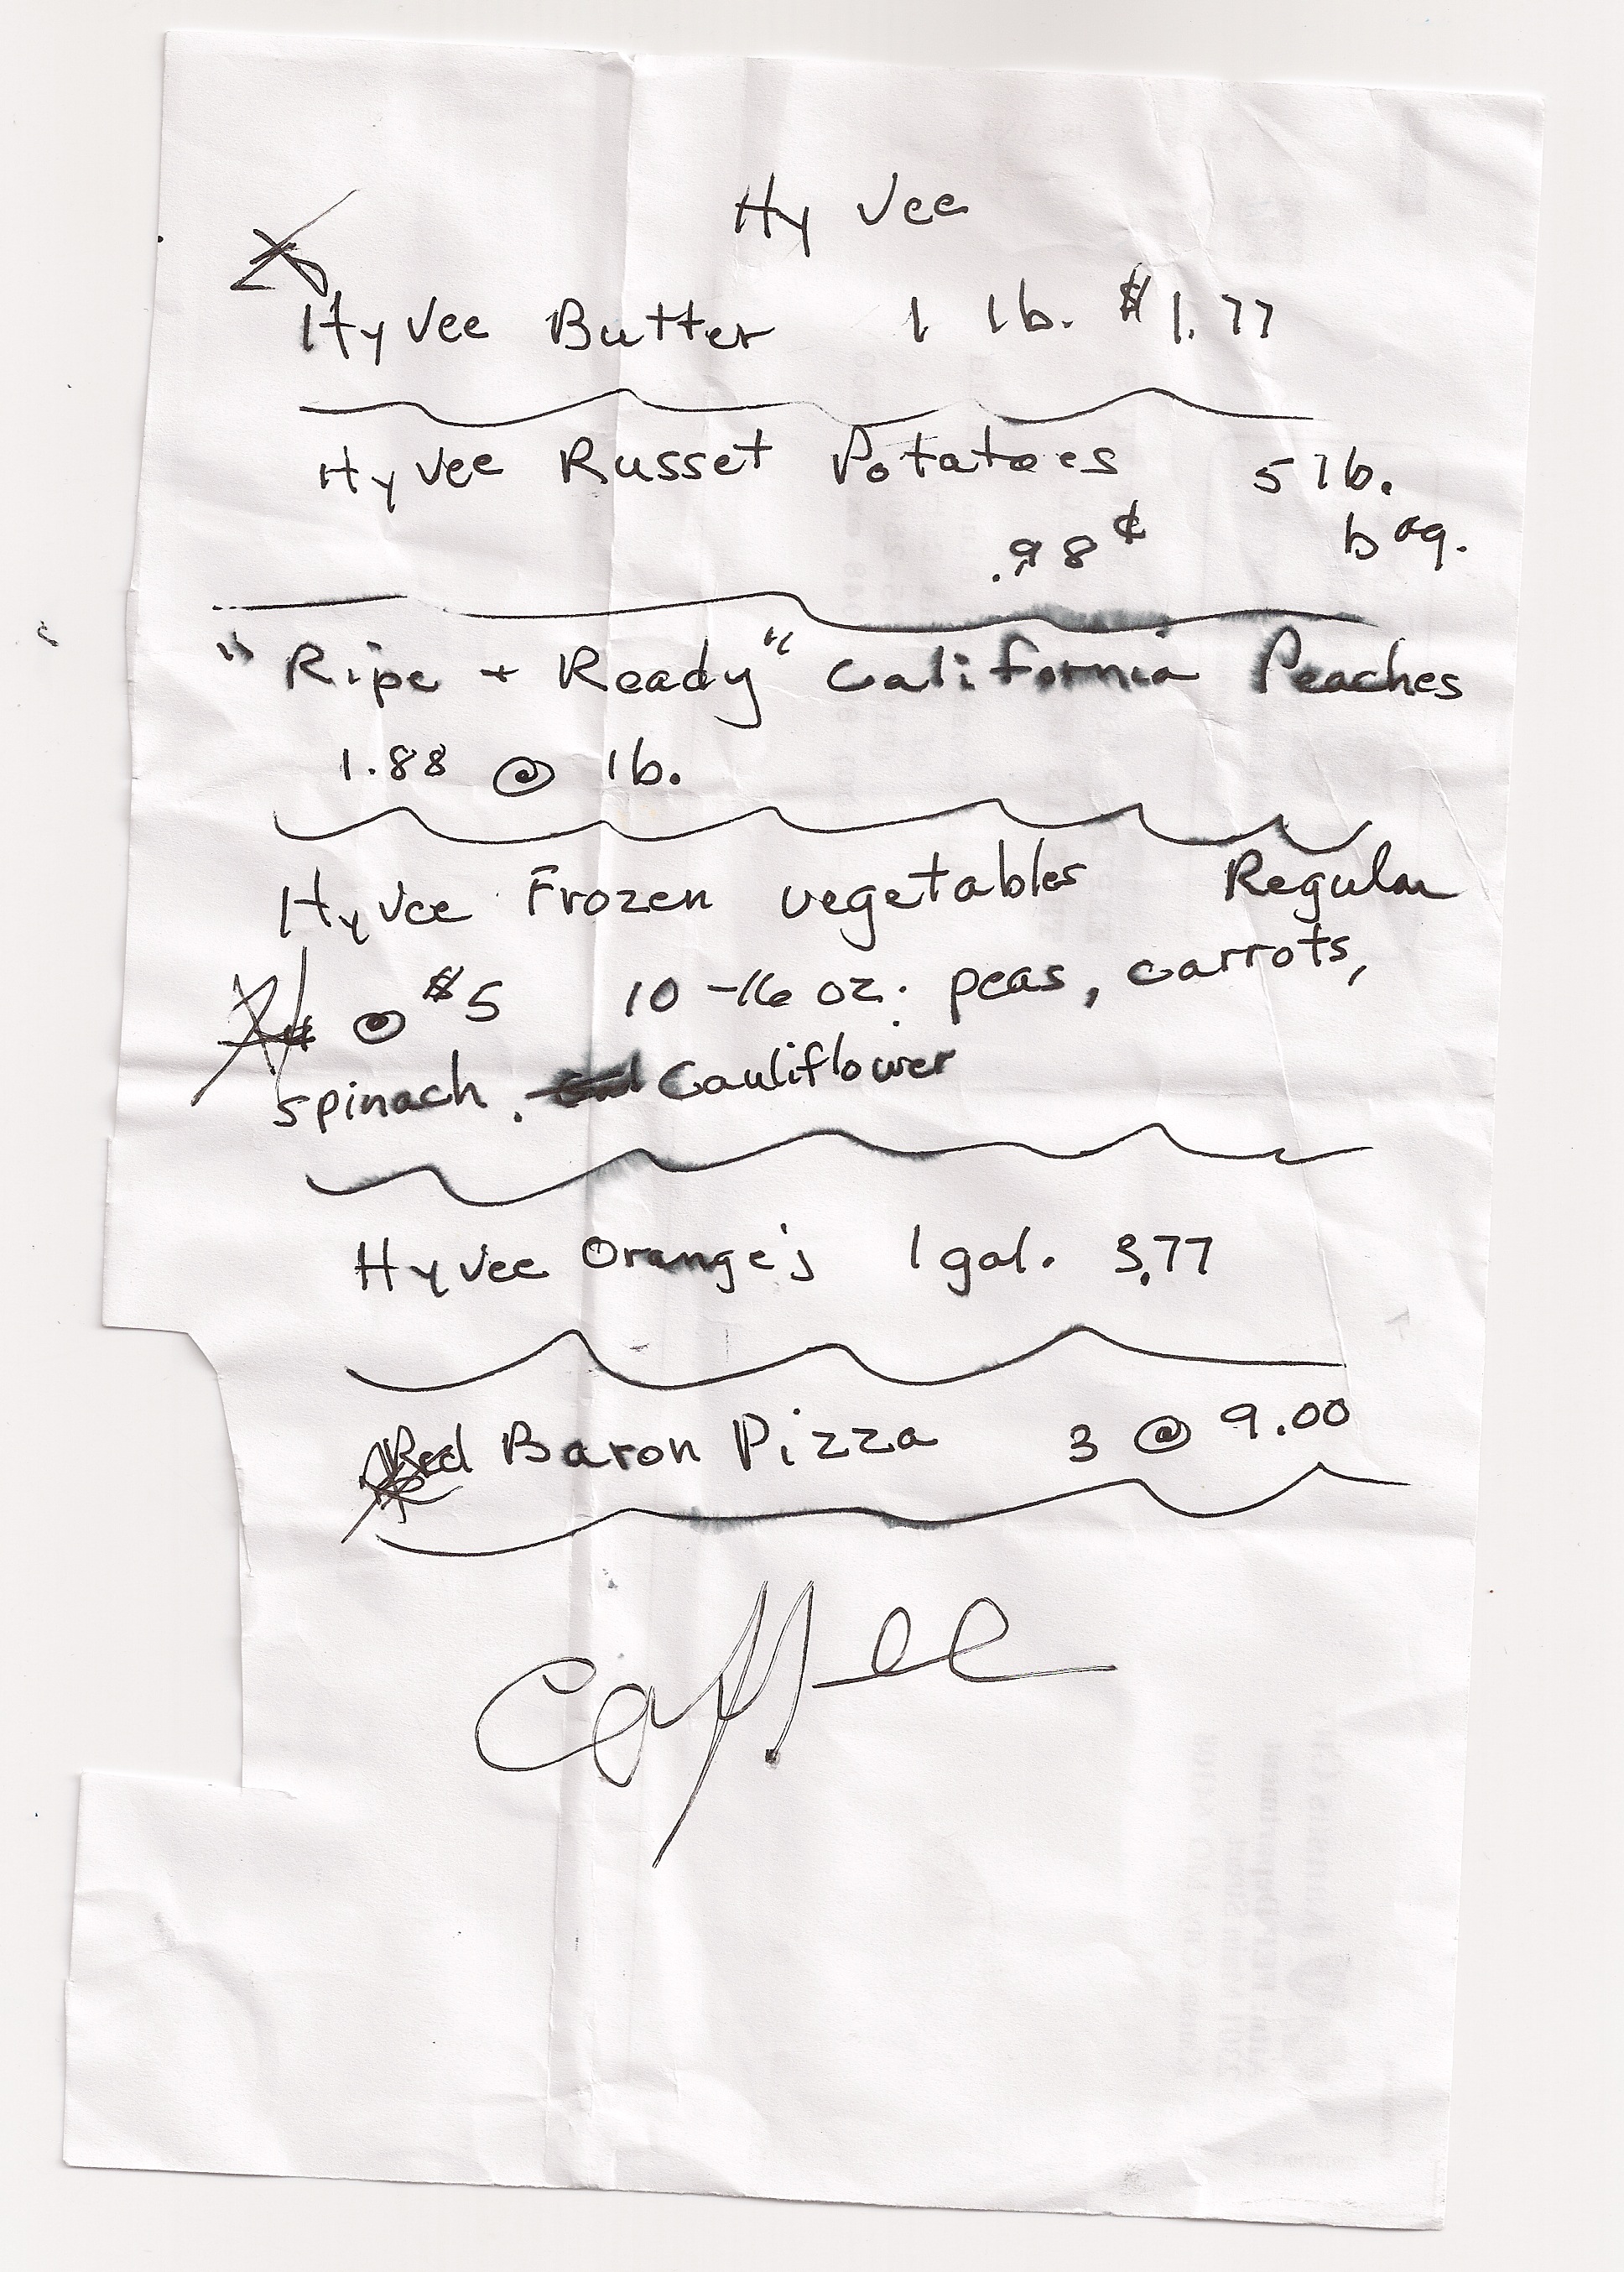 Hy Vee
HyVee Butter 1 lb. $1.77
HyVee Russet Potatoes 5 lb.
.98¢ bag.
"Ripe + Ready" California Peaches
1.88 @ lb.
HyVee Frozen vegetables Regular
@ $5 10-16 oz. peas, carrots,
spinach. Cauliflower
HyVee Orange's 1 gal. 3.77
Red Baron Pizza 3 @ 9.00
Coffee